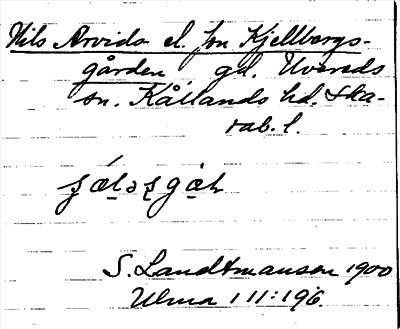 Nils Arvids- el. för Kjellbergs-
gården, gd. Uvereds
sn. Kållands hd. Ska-
rab. l.
S. Landtmanson 1900
Ulma 111:196.